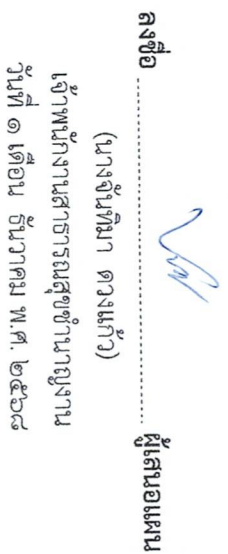 ลงชื่อ ........................................ ผู้เสนอแผน
(นางจันทิมา ดวงแก้ว)
เจ้าพนักงานสาธารณสุขชำนาญงาน
วันที่ ๑ เดือน ธันวาคม พ.ศ. ๒๕๖๘